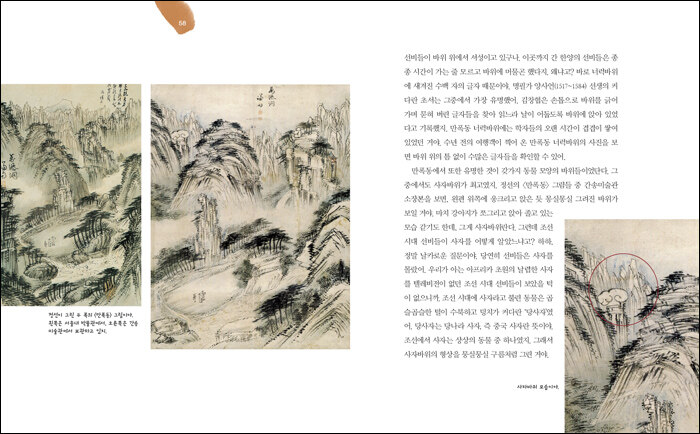 68
萬瀑洞
萬瀑洞
정선이 그린 두 폭의 〈만폭동〉 그림이야.
왼쪽은 서울대 박물관에서, 오른쪽은 간송
미술관에서 보관하고 있지.
선비들이 바위 위에서 서성이고 있구나. 이곳까지 간 한양의 선비들은 종
종 시간이 가는 줄 모르고 바위에 머물곤 했다지. 왜냐고? 바로 너럭바위
에 새겨진 수백 자의 글자 때문이야. 명필가 양사언(1517~1584) 선생의 커
다란 초서는 그중에서 가장 유명했어. 김창협은 손톱으로 바위를 긁어
가며 묻혀 버린 글자들을 찾아 읽느라 날이 어둡도록 바위에 앉아 있었
다고 기록했지. 만폭동 너럭바위에는 학자들의 오랜 시간이 겹겹이 쌓여
있었던 거야. 수년 전의 여행객이 찍어 온 만폭동 너럭바위의 사진을 보
면 바위 위의 틈 없이 수많은 글자들을 확인할 수 있어.
만폭동에서 또한 유명한 것이 갖가지 동물 모양의 바위들이었단다. 그
중에서도 사자바위가 최고였지. 정선의 〈만폭동〉 그림들 중 간송미술관
소장본을 보면, 왼편 위쪽에 웅크리고 앉은 듯 몽실몽실 그려진 바위가
보일 거야. 마치 강아지가 쪼그리고 앉아 졸고 있는
모습 같기도 한데, 그게 사자바위란다. 그런데 조선
시대 선비들이 사자를 어떻게 알았느냐고? 하하,
정말 날카로운 질문이야. 당연히 선비들은 사자를
몰랐어. 우리가 아는 아프리카 초원의 날렵한 사자
를 텔레비전이 없던 조선 시대 선비들이 보았을 턱
이 없으니까. 조선 시대에 사자라고 불린 동물은 곱
슬곱슬한 털이 수북하고 덩치가 커다란 '당사자'였
어. 당사자는 당나라 사자, 즉 중국 사자란 뜻이야.
조선에서 사자는 상상의 동물 중 하나였지. 그래서
사자바위의 형상을 몽실몽실 구름처럼 그린 거야.
사자바위 모습이야.